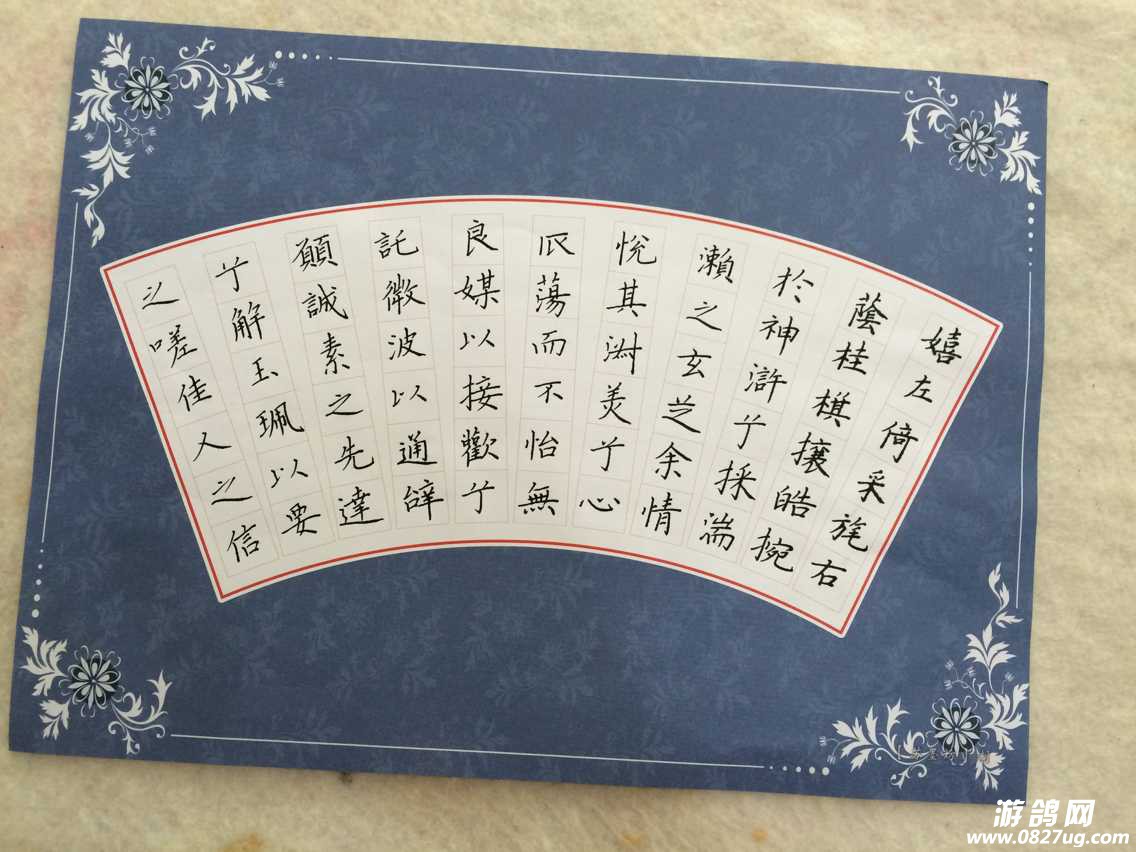 嬉左倚采旄右
蔭桂棋攘皓捥
於神滸兮採湍
瀨之玄芝余情
悅其淑美兮心
蕩而不怡無
良媒以接歡兮
託微波以通辭
願誠素之先達
兮解玉珮以要
之嗟佳人之信
游鸽网
www.0827ug.com